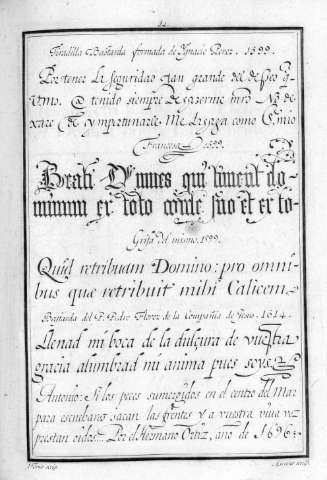 Tiradilla Bastarda formada de Ygnacio Perez. 1599.
Por tener la seguridad tan grande del deseo q
Vmo. a tenido siempre de hazerme mrd No de
xare de ympartunarle Me haga como Como
Francesa 1599.
Beati Omnes qui timent do-
minum ex toto corde suo et ex to-
Grifa del mismo. 1599.
Quid retribuam Domino: pro omni-
bus quæ retribuit mihi Calicem
Bastarda del P. Pedro Florez de la Compañia de Jesus. 1614.
Llenad mi boca de la dulçura de vuestra
gracia alumbrad mi anima pues soys
Antonio: Si los peces sumergidos en el centro del Mar
para escucharos sacan las frentes y a vuestra viva vez
prestan oidos... Por el Hermano Ortiz, año de 1696